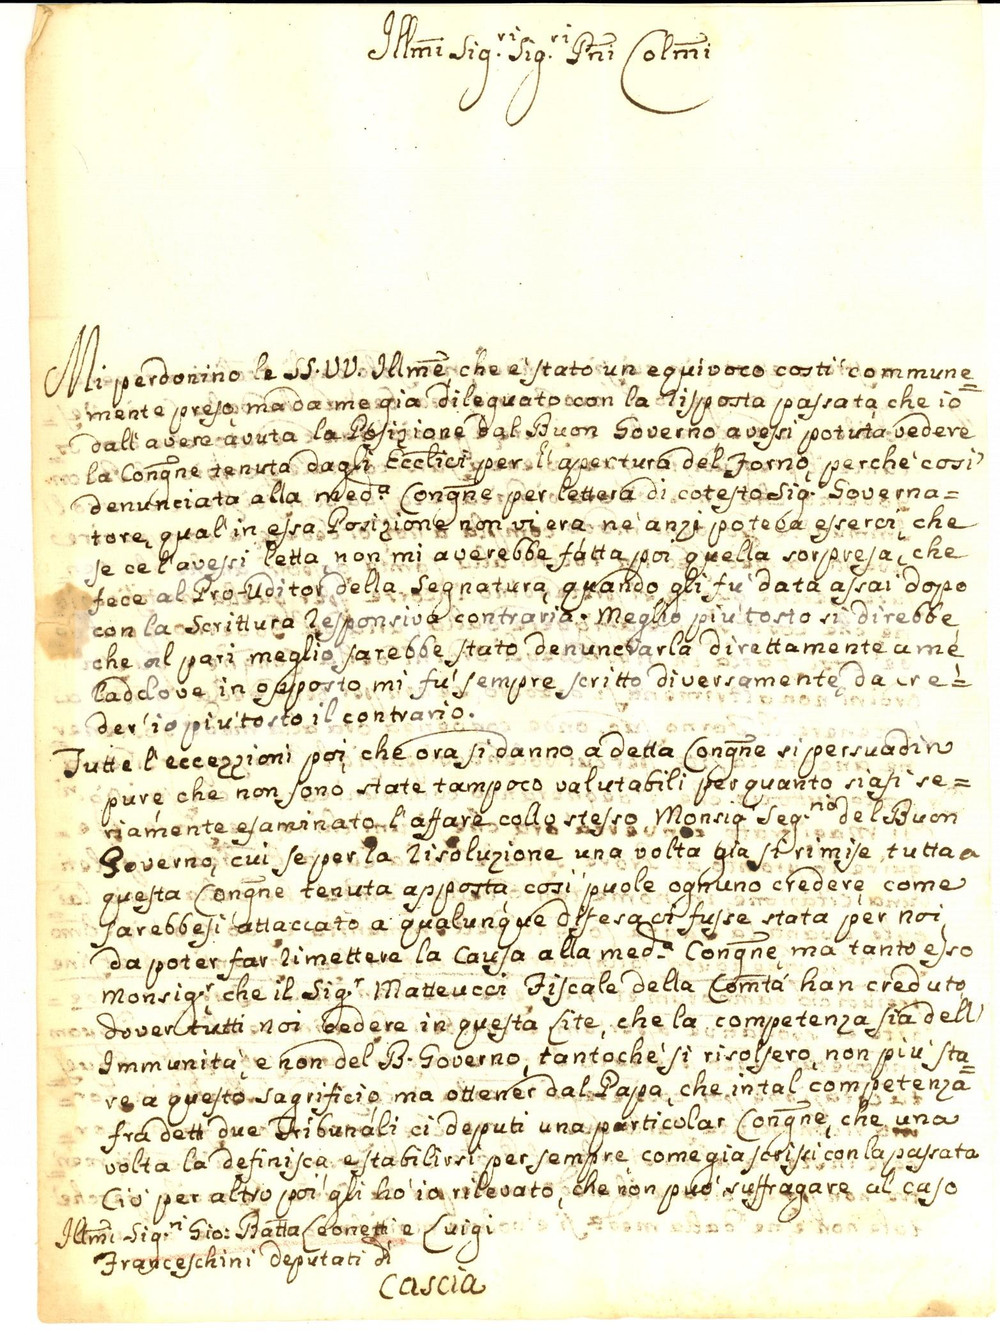 Illmi Sig.ri Sig.ri Pni Colmi
Mi perdonino le SS.VV. Illme, che è stato un equivoco costì commune=
mente preso, ma da me già dileguato con la risposta passata, che io
dall'avere avuta la Posizione dal Buon Governo avesi potuta vedere
la Congne tenuta dagli Ecclici per l'apertura del Forno, perchè così
denunciata alla meda Congne per lettera di cotesto Sigr Governa=
tore, qual'in essa Posizione non vi era, nè anzi poteva esserci, che
se ce l'avessi letta, non mi averebbe fatta poi quella sorpresa, che
fece al Pro-Uditor della Segnatura, quando gli fù data assai dopo
con la Scrittura responsiva contraria. Meglio più tosto si direbbe,
che al pari meglio sarebbe stato denunciarla direttamente a mè,
laddove in opposto mi fù sempre scritto diversamente, da cre=
der'io più tosto il contrario.
Tutte l'eccezzioni poi, che ora si danno a detta Congne si persuadino
pure che non sono state tampoco valutabili per quanto siasi se=
riamente esaminato l'affare collo stesso Monsigr Seg.rio del Buon
Governo, cui se per la risoluzione una volta già si rimise tutta
questa Congne tenuta apposta così puole ognuno credere come
sarebbesi attaccato a qualunque difesa ci fusse stata per noi,
da poter far rimettere la Causa alla meda Congne, ma tanto esso
Monsigr che il Sigr Matteucci Fiscale della Comtà han creduto
dover tutti noi cedere in questa Lite, che la competenza sia dell'
Immunità, e non del B. Governo, tantochè si risolsero non più sta=
re a questo sagrificio, ma ottener dal Papa, che in tal competenza
fra detti due Tribunali ci deputi una particolar Congne, che una
volta la definisca, e stabilirsi per sempre, come già scrissi con la passata
Ciò per altro poi gli hò io rilevato, che non può suffragare al caso
Illmi Sig.ri Gio: Batta Leonetti e Luigi
Franceschini deputati di
Cascia